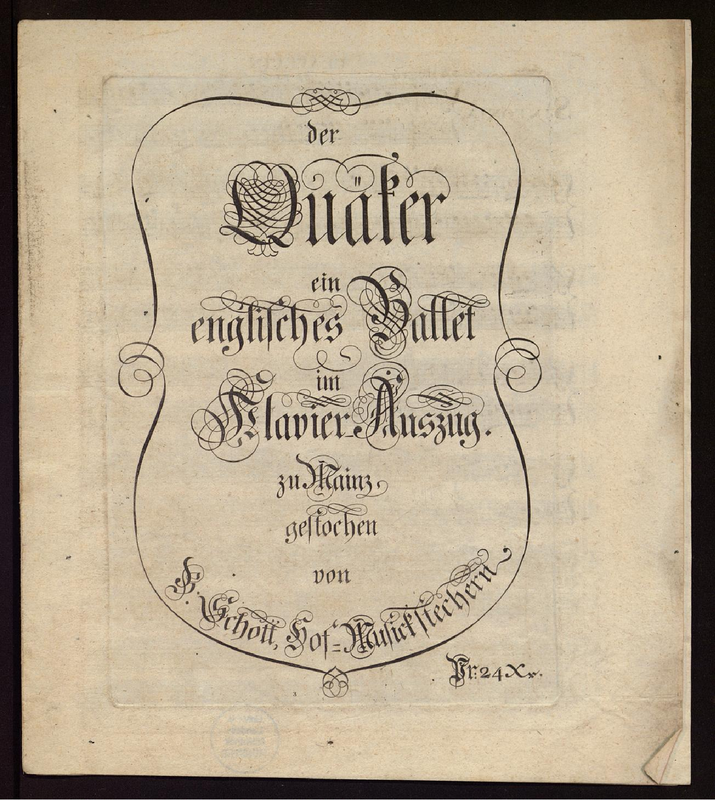 der
Quäker
ein
englisches Ballet
im
Klavier-Auszug.
zu Mainz
gestochen
von
B. Schott, Hof=Musickstechern
Pr: 24 Xr.